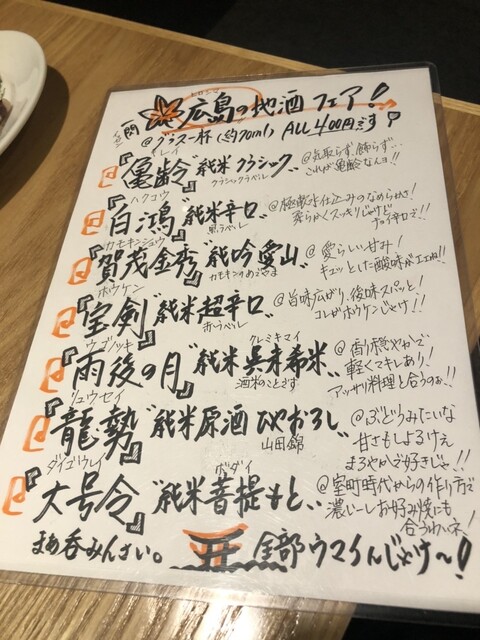 ヒロシマ
広島の地酒フェア!
@グラス一杯(約70ml) ALL 400円です!
キレイ
『亀齢』純米 クラシック
クラシックラベル
@気取らず、飾らず…
これが亀齢なんョ!!
ハクコウ
『白鴻』純米辛口
黒ラベル
@極軟水仕込みのなめらかさ!
柔らかくスッキリじゃけど
カモキンシュウ
『賀茂金秀』純吟 愛山
@愛らしい甘み!
キュッとした酸味がエエね!!
ホウケン
『宝剣』純米超辛口
赤ラベル
@旨味広がり、後味スパッと!
コレがホウケンじゃけ!!
ウゴノツキ
『雨後の月』純米 呉未希米
クレミキマイ
酒米のことさす
@香り穏やかで
軽くマキレあり!
アッサリ料理と合うのぉ!!
リュウセイ
『龍勢』純米原酒 ひやおろし
山田錦
@ぶどうみたいな
甘さもしよるけえ
まろやかで好きじゃ!!
ダイゴウレイ
『大号令』純米菩提もと
ボダイ
@室町時代からの作り方で
濃いーしお好み焼にも
合うわいネ!
まあ呑みんさい。
全部ウマイんじゃけ〜!